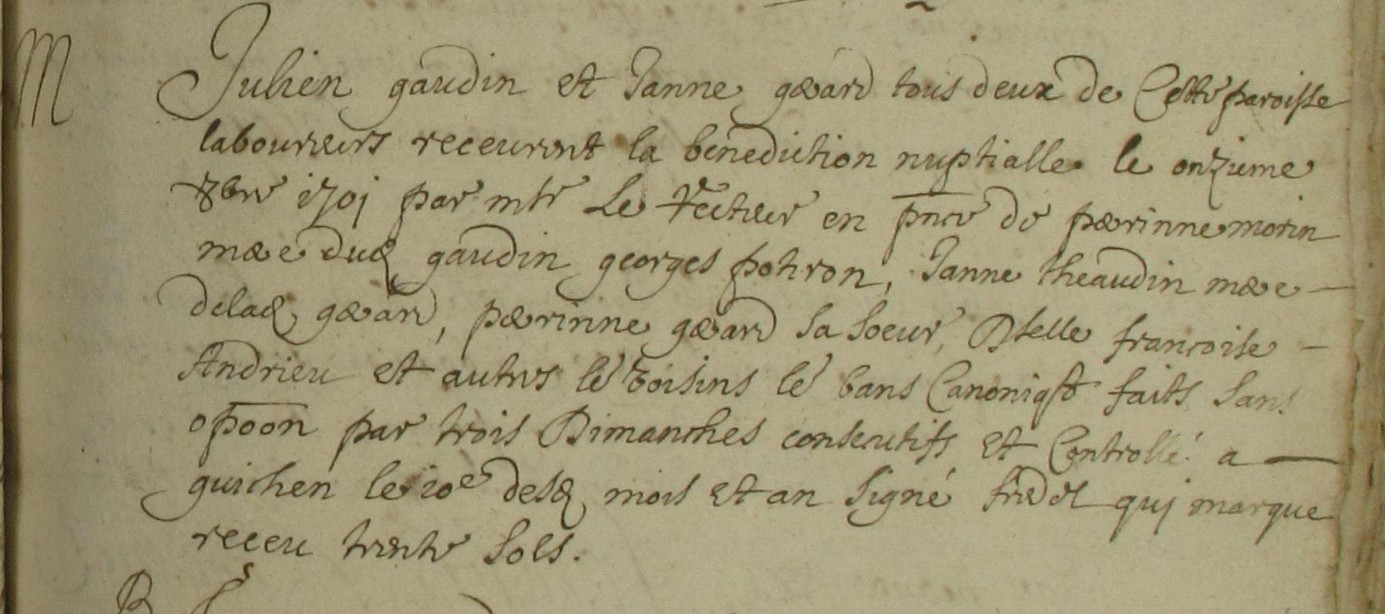 M
Julien gaudin et Janne gerard tous deux de Cette paroisse
laboureurs receurent la benediction nuptialle le onzieme
1701 par mtr Le recteur en pnce de perrinne morin
mere dud gaudin georges pohron, Janne theaudin mere
delad gerard, perrinne gerard sa soeur, Dselle francoise
Andrieu et autres le voisins le bans Canoniqt faits sans
opoon par trois Dimanches consecutifs et Controllé a
guichen le 10e desd mois et an signé qui marque
receu trente sols.